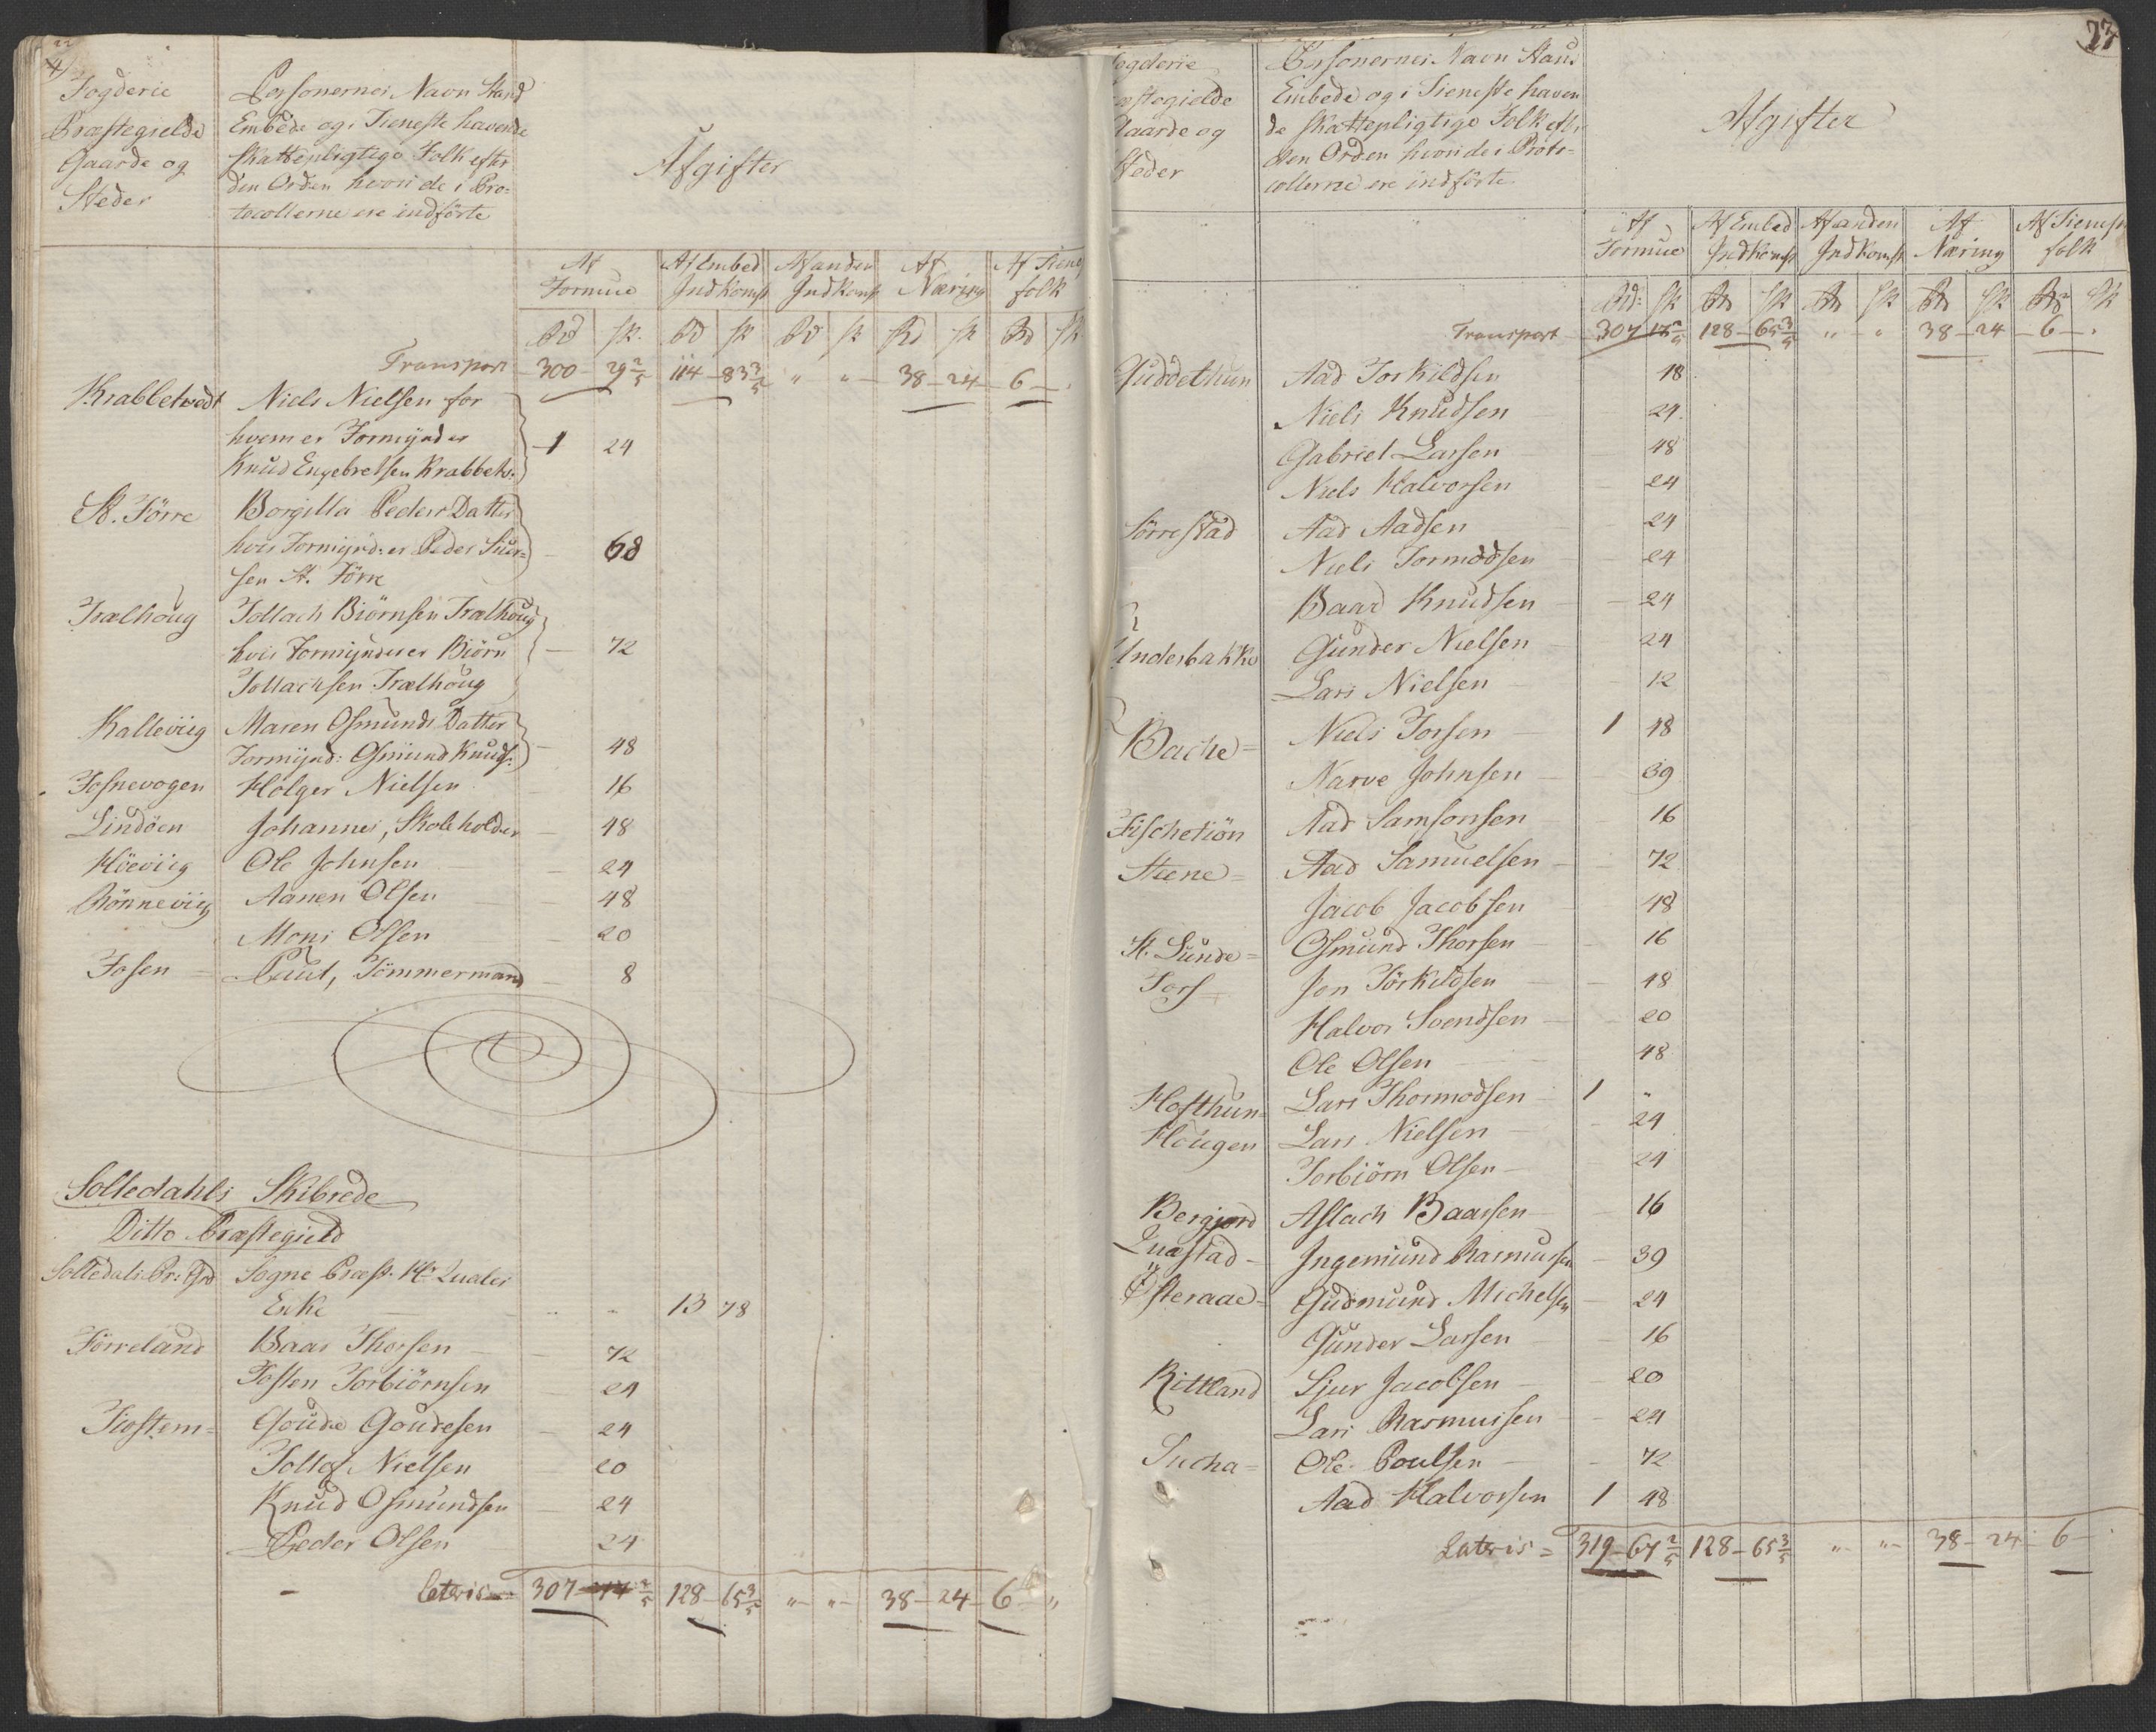 Fogderie
Præstegielde
Gaarde og
Steder
Personernes Navn Stand
Embede og i Tieneste havende
Skattepligtige Folk efter
den Orden hvori de i Pro-
tocollerne ere indförte
Afgifter
Af Formue | Af Embed Indkomst | Af anden Indkomst | Af Næring | Af Tieneste folk
Rd | sk. | Rd | sk | Rd | sk | Rd | sk | Rd | sk
Transport 300 - 29 2/5 | 114 - 83 3/5 | " " | 38 - 24 | 6 -
Krabbetvedt Niels Nielsen for
hvem er Formynder
Knud Engebretsen Krabbetv: 1 24
St. Förre Borgilla Peders Datter
hvis Formynd: er Peder Siver-
sen St. Förre 68
Trælhoug Tollach Biörnsen Trælhoug
hvis Formynder er Biörn 72
Tollachsen Trælhoug
Kalleviig Maren Osmunds Datter
Formynd: Osmund Knuds: 48
Fosnevogen Holger Nielsen 16
Lindöen Johannes, Skoleholder 48
Höeviig Ole Johnsen 24
Rönneviig Aanen Olsen 48
Mons Olsen 20
Fosen Paul, Tömmermand 8
Solledahls Skibrede
Ditto Præstegield
Solledals Pr: Grd Sogne Præst Hr Qvales
Enke 13 78
Förreland Baar Thorsen 72
Tosten Torbiörnsen 24
Tiostem= Goude Goudesen 24
Tollef Nielsen 20
Knud Osmundsen 24
Peder Olsen 24
Lateris 307 - 2/5 | 128 - 65 3/5 | " " | 38 - 24 | 6 "
77
Fogderie
Præstegielde
Gaarde og
Steder
Personernes Navn Stand
Embede og i Tieneste haven
de Skattepligtige Folk efter
den Orden hvori de i Proto-
collerne ere indförte
Afgifter
Af Formue | Af Embed Indkomst | Af anden Indkomst | Af Næring | Af Tieneste folk
Rd: | sk | Rd | sk | Rd | sk | Rd | sk | Rd | sk
Transport 307 - 2/5 | 128 - 65 3/5 | " " | 38 - 24 | 6 -
Guddethun Aad Torkildsen 18
Niels Knudsen 24
Gabriel Larsen 48
Niels Halvorsen 24
Sörrestad Aad Aadsen 24
Niels Tormodsen 24
Baard Knudsen 24
Underbakke Gunder Nielsen 24
Lars Nielsen 12
Bache= Niels Torsen 1 48
Narve Johnsen 39
Fischetiön Aad Samsonsen 16
Steene= Aad Samuelsen 72
Jacob Jacobsen 48
St. Sunde= Osmund Thorsen 16
Fors Jon Törkildsen 48
Halvor Svendsen 20
Ole Olsen 48
Hofthun= Lars Thormodsen 1 "
Hougen Lars Nielsen 24
Torbiörn Olsen 24
Bergjord Aslach Baarsen 16
Qvæstad Ingemund Rasmusen 39
Østeraae= Gudmund Michelsen 24
Gunder Larsen 16
Rittland Sjur Jacobsen 20
Lars Rasmussen 24
Sucha= Ole Poulsen 72
Aad Halvorsen 1 48
Lateris= 319 - 67 2/5 | 128 - 65 3/5 | " " | 38 - 24 | 6 -